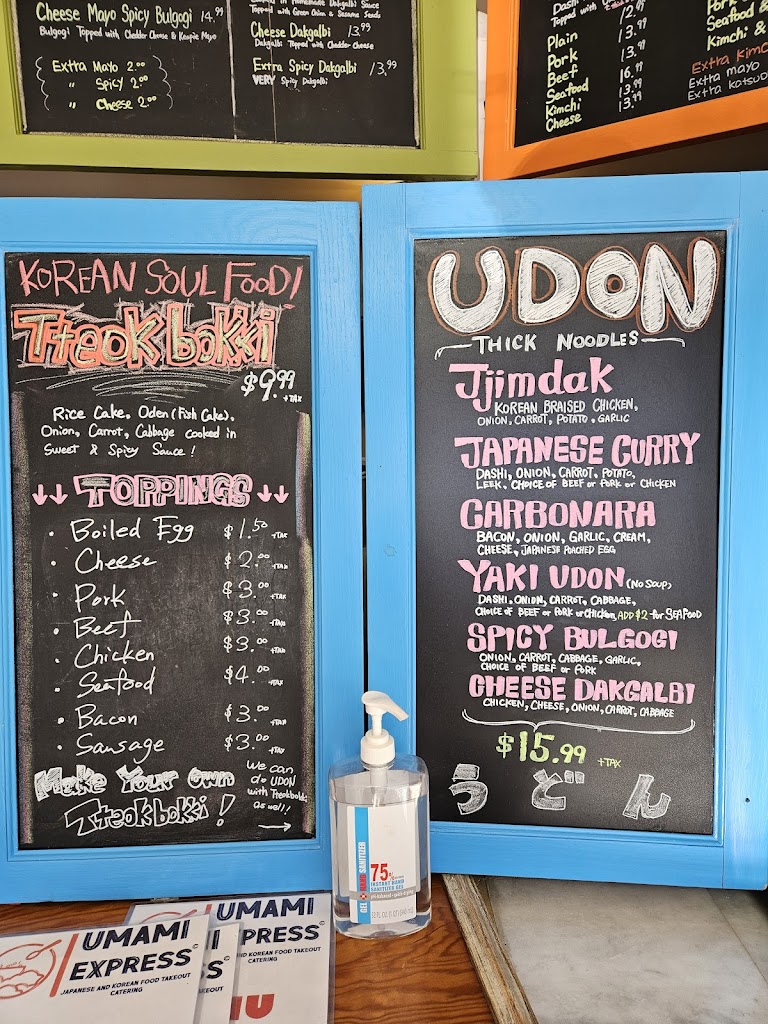 Cheese Mayo Spicy Bulgogi 14.99
Bulgogi Topped with Cheddar Cheese & Kewpie Mayo
Extra Mayo 2.00
" Spicy 2.00
" Cheese 2.00
in Homemade Dakgalbi Sauce
Topped with Green Onion & Sesame Seeds
Cheese Dakgalbi 13.99
Dakgalbi Topped with Cheddar Cheese
Extra Spicy Dakgalbi 13.99
VERY Spicy Dakgalbi
Dashi
Topped with
Plain 12.99
Pork 13.99
Beef 13.99
Seafood 16.99
Kimchi 13.99
Cheese 13.99
Pork
Seafood &
Kimchi &
Extra Kimc
Extra mayo
Extra katsuo
KOREAN SOUL FOOD!
Tteokbokki
$9.99 +TAX
Rice Cake, Oden (Fish Cake),
Onion, Carrot, Cabbage cooked in
Sweet & Spicy Sauce!
↓↓ TOPPINGS ↓↓
• Boiled Egg $1.50 +TAX
• Cheese $2.00 +TAX
• Pork $3.00 +TAX
• Beef $3.00 +TAX
• Chicken $3.00 +TAX
• Seafood $4.00 +TAX
• Bacon $3.00 +TAX
• Sausage $3.00 +TAX
Make Your Own
Tteokbokki!
We can
do UDON
with Tteokbokki
as well!!
→
UDON
THICK NOODLES
Jjimdak
KOREAN BRAISED CHICKEN,
ONION, CARROT, POTATO, GARLIC
JAPANESE CURRY
DASHI, ONION, CARROT, POTATO,
LEEK, CHOICE OF BEEF or PORK or CHICKEN
CARBONARA
BACON, ONION, GARLIC, CREAM,
CHEESE, JAPANESE POACHED EGG
YAKI UDON (NO SOUP)
DASHI, ONION, CARROT, CABBAGE,
CHOICE OF BEEF or PORK or CHICKEN, ADD $2 for SEAFOOD
SPICY BULGOGI
ONION, CARROT, CABBAGE, GARLIC,
CHOICE OF BEEF or PORK
CHEESE DAKGALBI
CHICKEN, CHEESE, ONION, CARROT, CABBAGE
$15.99 +TAX
うどん
GEL HAND SANITIZER
75%
INSTANT HAND
SANITIZER GEL
UMAMI
EXPRESS©
JAPANESE AND KOREAN FOOD TAKEOUT
CATERING
UMAMI
PRESS©
AND KOREAN FOOD TAKEOUT
CATERING